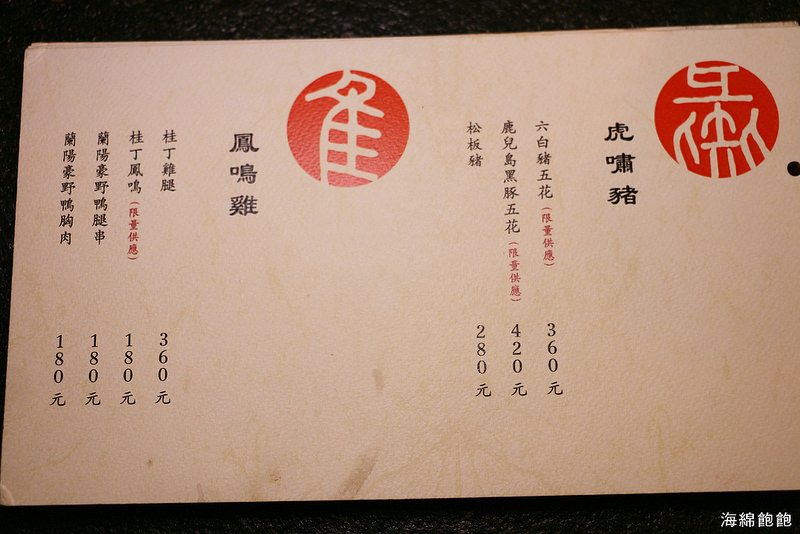 虎嘯豬
六白豬五花(限量供應) 360元
鹿兒島黑豚五花(限量供應) 420元
松板豬 280元
鳳鳴雞
桂丁雞腿 360元
桂丁鳳鳴(限量供應) 180元
蘭陽豪野鴨腿串 180元
蘭陽豪野鴨胸肉 180元
海綿飽飽